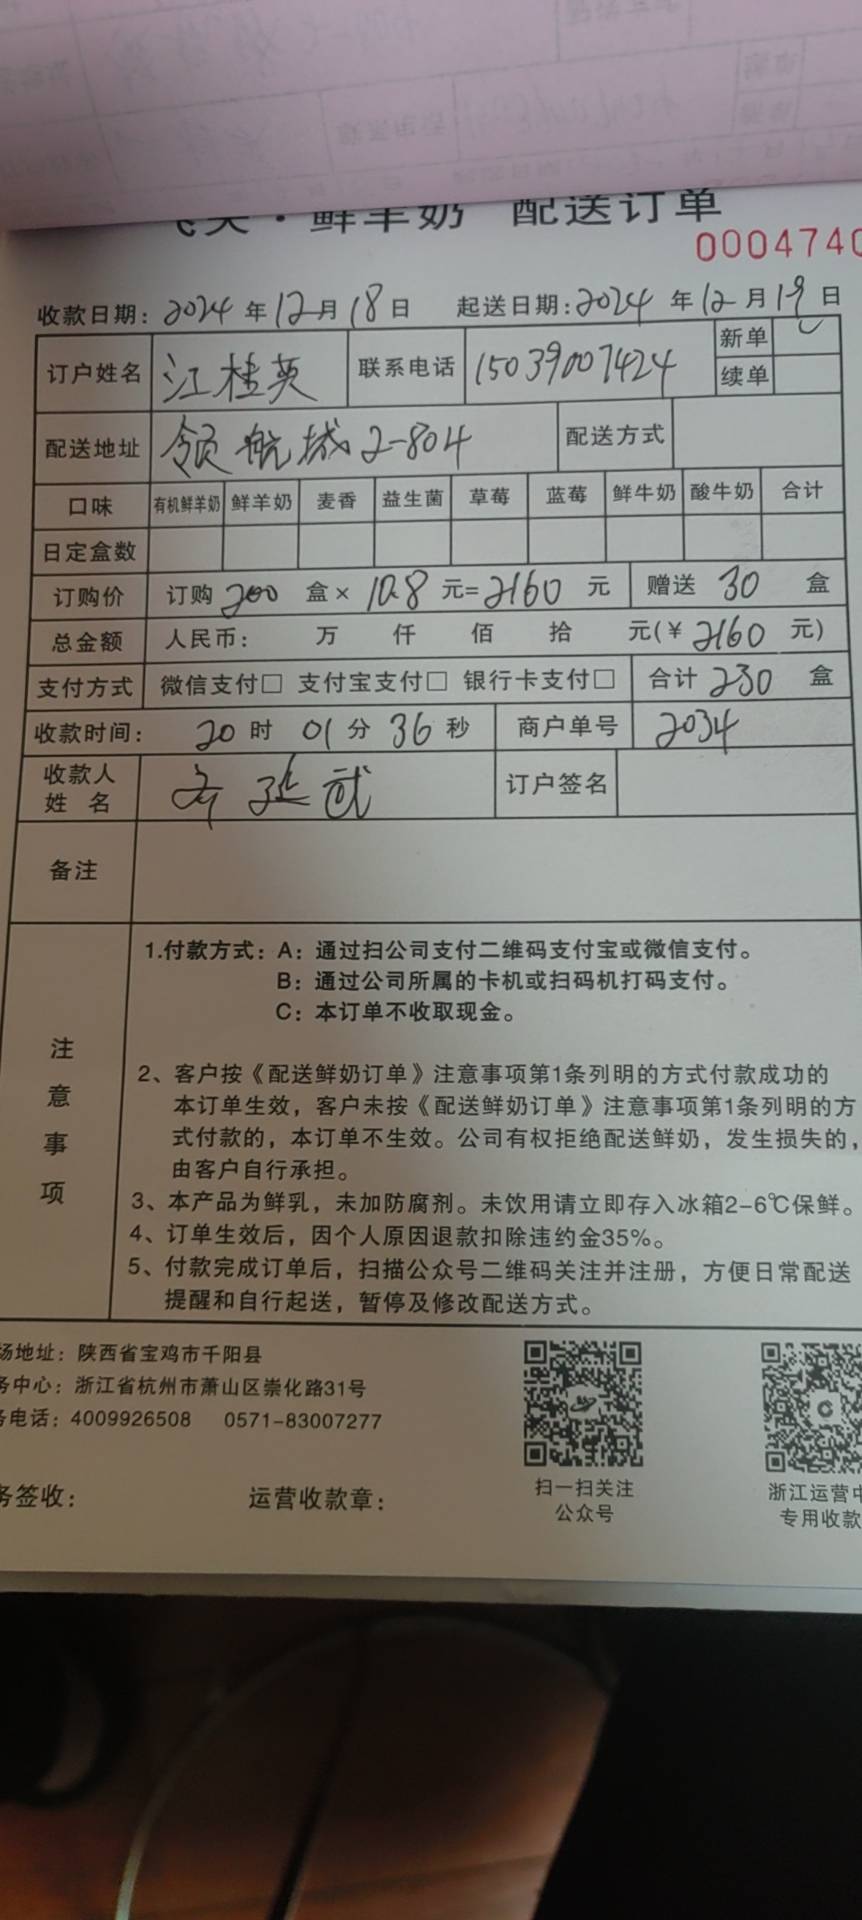 ·鲜羊奶 配送订单
000474
收款日期：2024年12月18日 起送日期：2024年12月19日
订户姓名 江桂英 联系电话 15039007424 新单 ✓
续单
配送地址 领航城2-804 配送方式
口味 有机鲜羊奶 鲜羊奶 麦香 益生菌 草莓 蓝莓 鲜牛奶 酸牛奶 合计
日定盒数
订购价 订购 200 盒× 10.8 元=2160 元 赠送 30 盒
总金额 人民币： 万 仟 佰 拾 元(¥ 2160 元)
支付方式 微信支付□ 支付宝支付□ 银行卡支付□ 合计 230 盒
收款时间： 20时 01分 36秒 商户单号 2034
收款人姓名 延武 订户签名
备注
注意事项
1.付款方式：A：通过扫公司支付二维码支付宝或微信支付。
B：通过公司所属的卡机或扫码机打码支付。
C：本订单不收取现金。
2、客户按《配送鲜奶订单》注意事项第1条列明的方式付款成功的
本订单生效，客户未按《配送鲜奶订单》注意事项第1条列明的方
式付款的，本订单不生效。公司有权拒绝配送鲜奶，发生损失的，
由客户自行承担。
3、本产品为鲜乳，未加防腐剂。未饮用请立即存入冰箱2-6℃保鲜。
4、订单生效后，因个人原因退款扣除违约金35%。
5、付款完成订单后，扫描公众号二维码关注并注册，方便日常配送
提醒和自行起送，暂停及修改配送方式。
场地址：陕西省宝鸡市千阳县
务中心：浙江省杭州市萧山区崇化路31号
电话：4009926508 0571-83007277
扫一扫关注
公众号
浙江运营中
专用收款
务签收： 运营收款章：